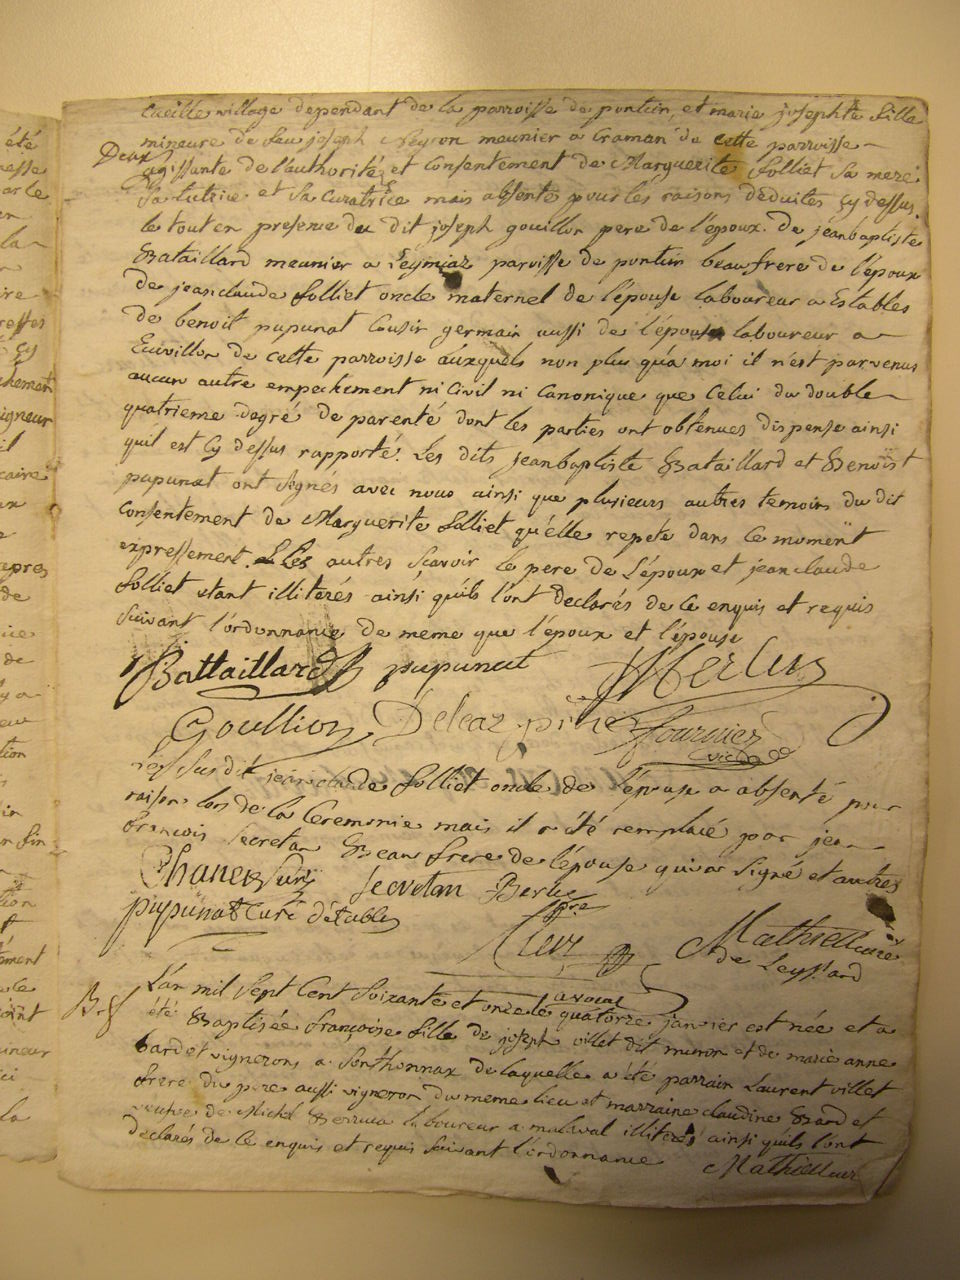 cueille village dependant de la parroisse de poncin, et marie josephte fille
mineure de feu joseph Neyron meunier a Craman de cette parroisse
Deux
agissante de l'authorité et Consentement de Marguerite folliet sa mere
sa tutrice et sa Curatrice mais absente pour les raisons deduites cy dessus.
le tout en presence du dit joseph gouillon pere de l'époux. De jeanbaptiste
Bataillard meunier a Leymiaz paroisse de poncin beaufrere de l'époux
De jeanclaude folliet oncle maternel de l'épouse laboureur a Estables
de benoit pupunat Cousin germain aussi de l'épouse laboureur a
Ecuvillon de cette parroisse auxquels non plus qu'a moi il n'est parvenus
aucun autre empechement ni Civil ni Canonique que Celui du double
quatrieme degré de parenté dont les parties ont obtenues dispense ainsi
quil est Cy dessus rapporté. Les dits jeanbaptiste Bataillard et Benoist
pupunat ont signés avec nous ainsi que plusieurs autres temoins du dit
Consentement de Marguerite folliet qu'elle repete dans le moment
expressement. Les autres scavoir le pere de l'époux et jeanclaude
folliet etant illitérés ainsi qu'ils l'ont declarés de ce enquis et requis
suivant l'ordonnance de meme que l'époux et l'épouse
Battaillard pupunat
Goullion Deleaz fournier
vic
Le susdit jeanclaude folliet oncle de l'épouse a absenté pour
raison lors de la Ceremonie mais il a été remplacé par jean
françois secretan Beaufrere de l'épouse qui a signé et autres
secretan
pupunat Curé d'étables
Mathieu Curé
de Leyssard
avoüé
B. f
L'an mil sept Cent soixante et onze le quatorze janvier est née et a
été Baptisée françoise fille de joseph villet dit muron et de marie anne
bard et vignerons a sonthonnax de laquelle a été parrain Laurent villet
frere du pere aussi vigneron du meme lieu et marraine claudine Bard et
veuve de Michel laboureur a malaval illiterés ainsi quils l'ont
declarés de ce enquis et requis suivant l'ordonnance Mathieu Curé